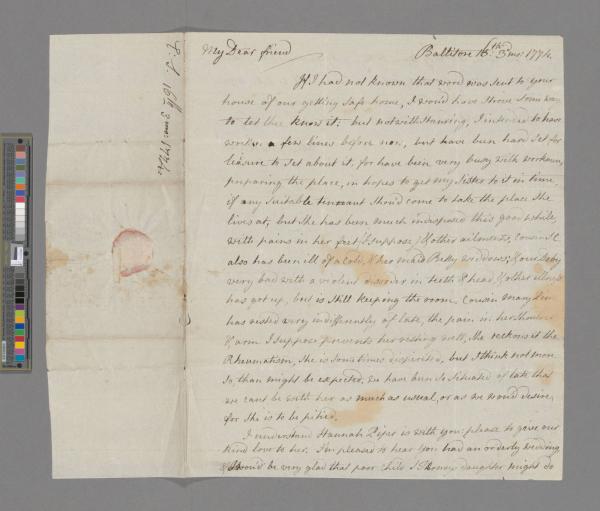 My Dear friend Ballitore 16th 3mo: 1774.
If I had not known that word was sent to your
house of our getting safe home, I wou'd have strove some way
to let thee know it; but notwithstanding, I intended to have
wrote a few lines before now, but have been hard set for
leisure to set about it, for have been very busy with workmen,
preparing the place, in hopes to get my Sister to it in time,
if any suitable tennant shou'd come to take the place she
lives at, but she has been much indisposed this good while,
with pains in her feet (I suppose) & other ailments, Cousin
also has been ill of a cold, & her maid Betty widdows; &
very bad with a violent disorder in teeth & head & other
has got up, but is still keeping the room. Cousin Mary
has rested very indifferently of late, the pain in her shoulder
& arm I suppose prevents her resting well, she reckons it the
Rheumatism, she is sometimes dispirited, but I think not more
so, than might be expected, we have been so situated of late that
we cant be with her as much as usual, or as we wou'd desire,
for she is to be pitied.
I understand Hannah Piper is with you: please to give our
kind love to her. I'm pleased to hear you had an orderly wedding
& shou'd be very glad that poor child daughter might do
16th 3mo: 1774.